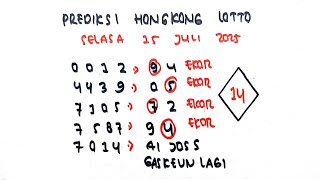 PREDIKSI HONGKONG LOTTO
SELASA 15 JULI 2025
0012 > 94 EKOR
4439 > 05 EKOR
7105 > 72 EKOR
7587 > 94 EKOR
7014 > AI JOSS
GASKEUN LAGI
14